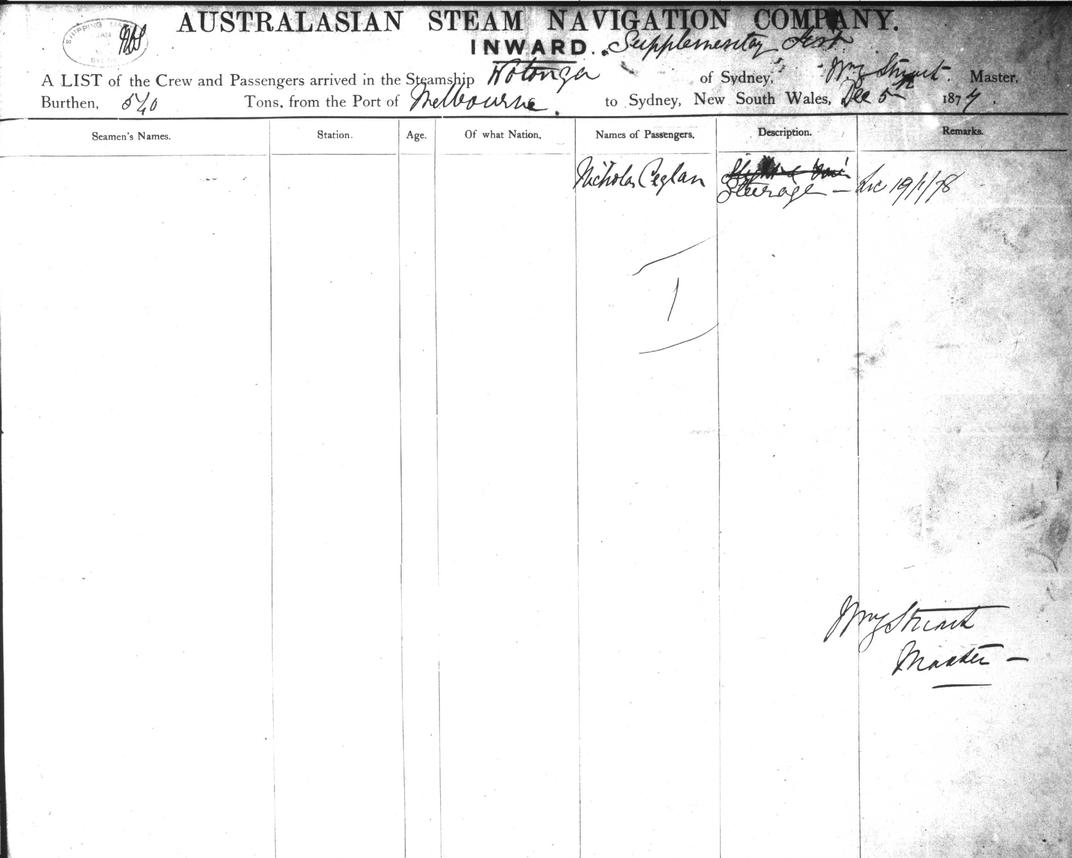 AUSTRALASIAN STEAM NAVIGATION COMPANY.
INWARD. Supplementary List
A LIST of the Crew and Passengers arrived in the Steamship Wotonga of Sydney, Wm Stuart. Master,
Burthen, 540 Tons, from the Port of Melbourne. to Sydney, New South Wales, Dec 5th 1877.
Seamen's Names. Station. Age. Of what Nation. Names of Passengers. Description. Remarks.
Nicholas Ceglan Steerage — 19/1/78
1
Wm Stuart
Master —